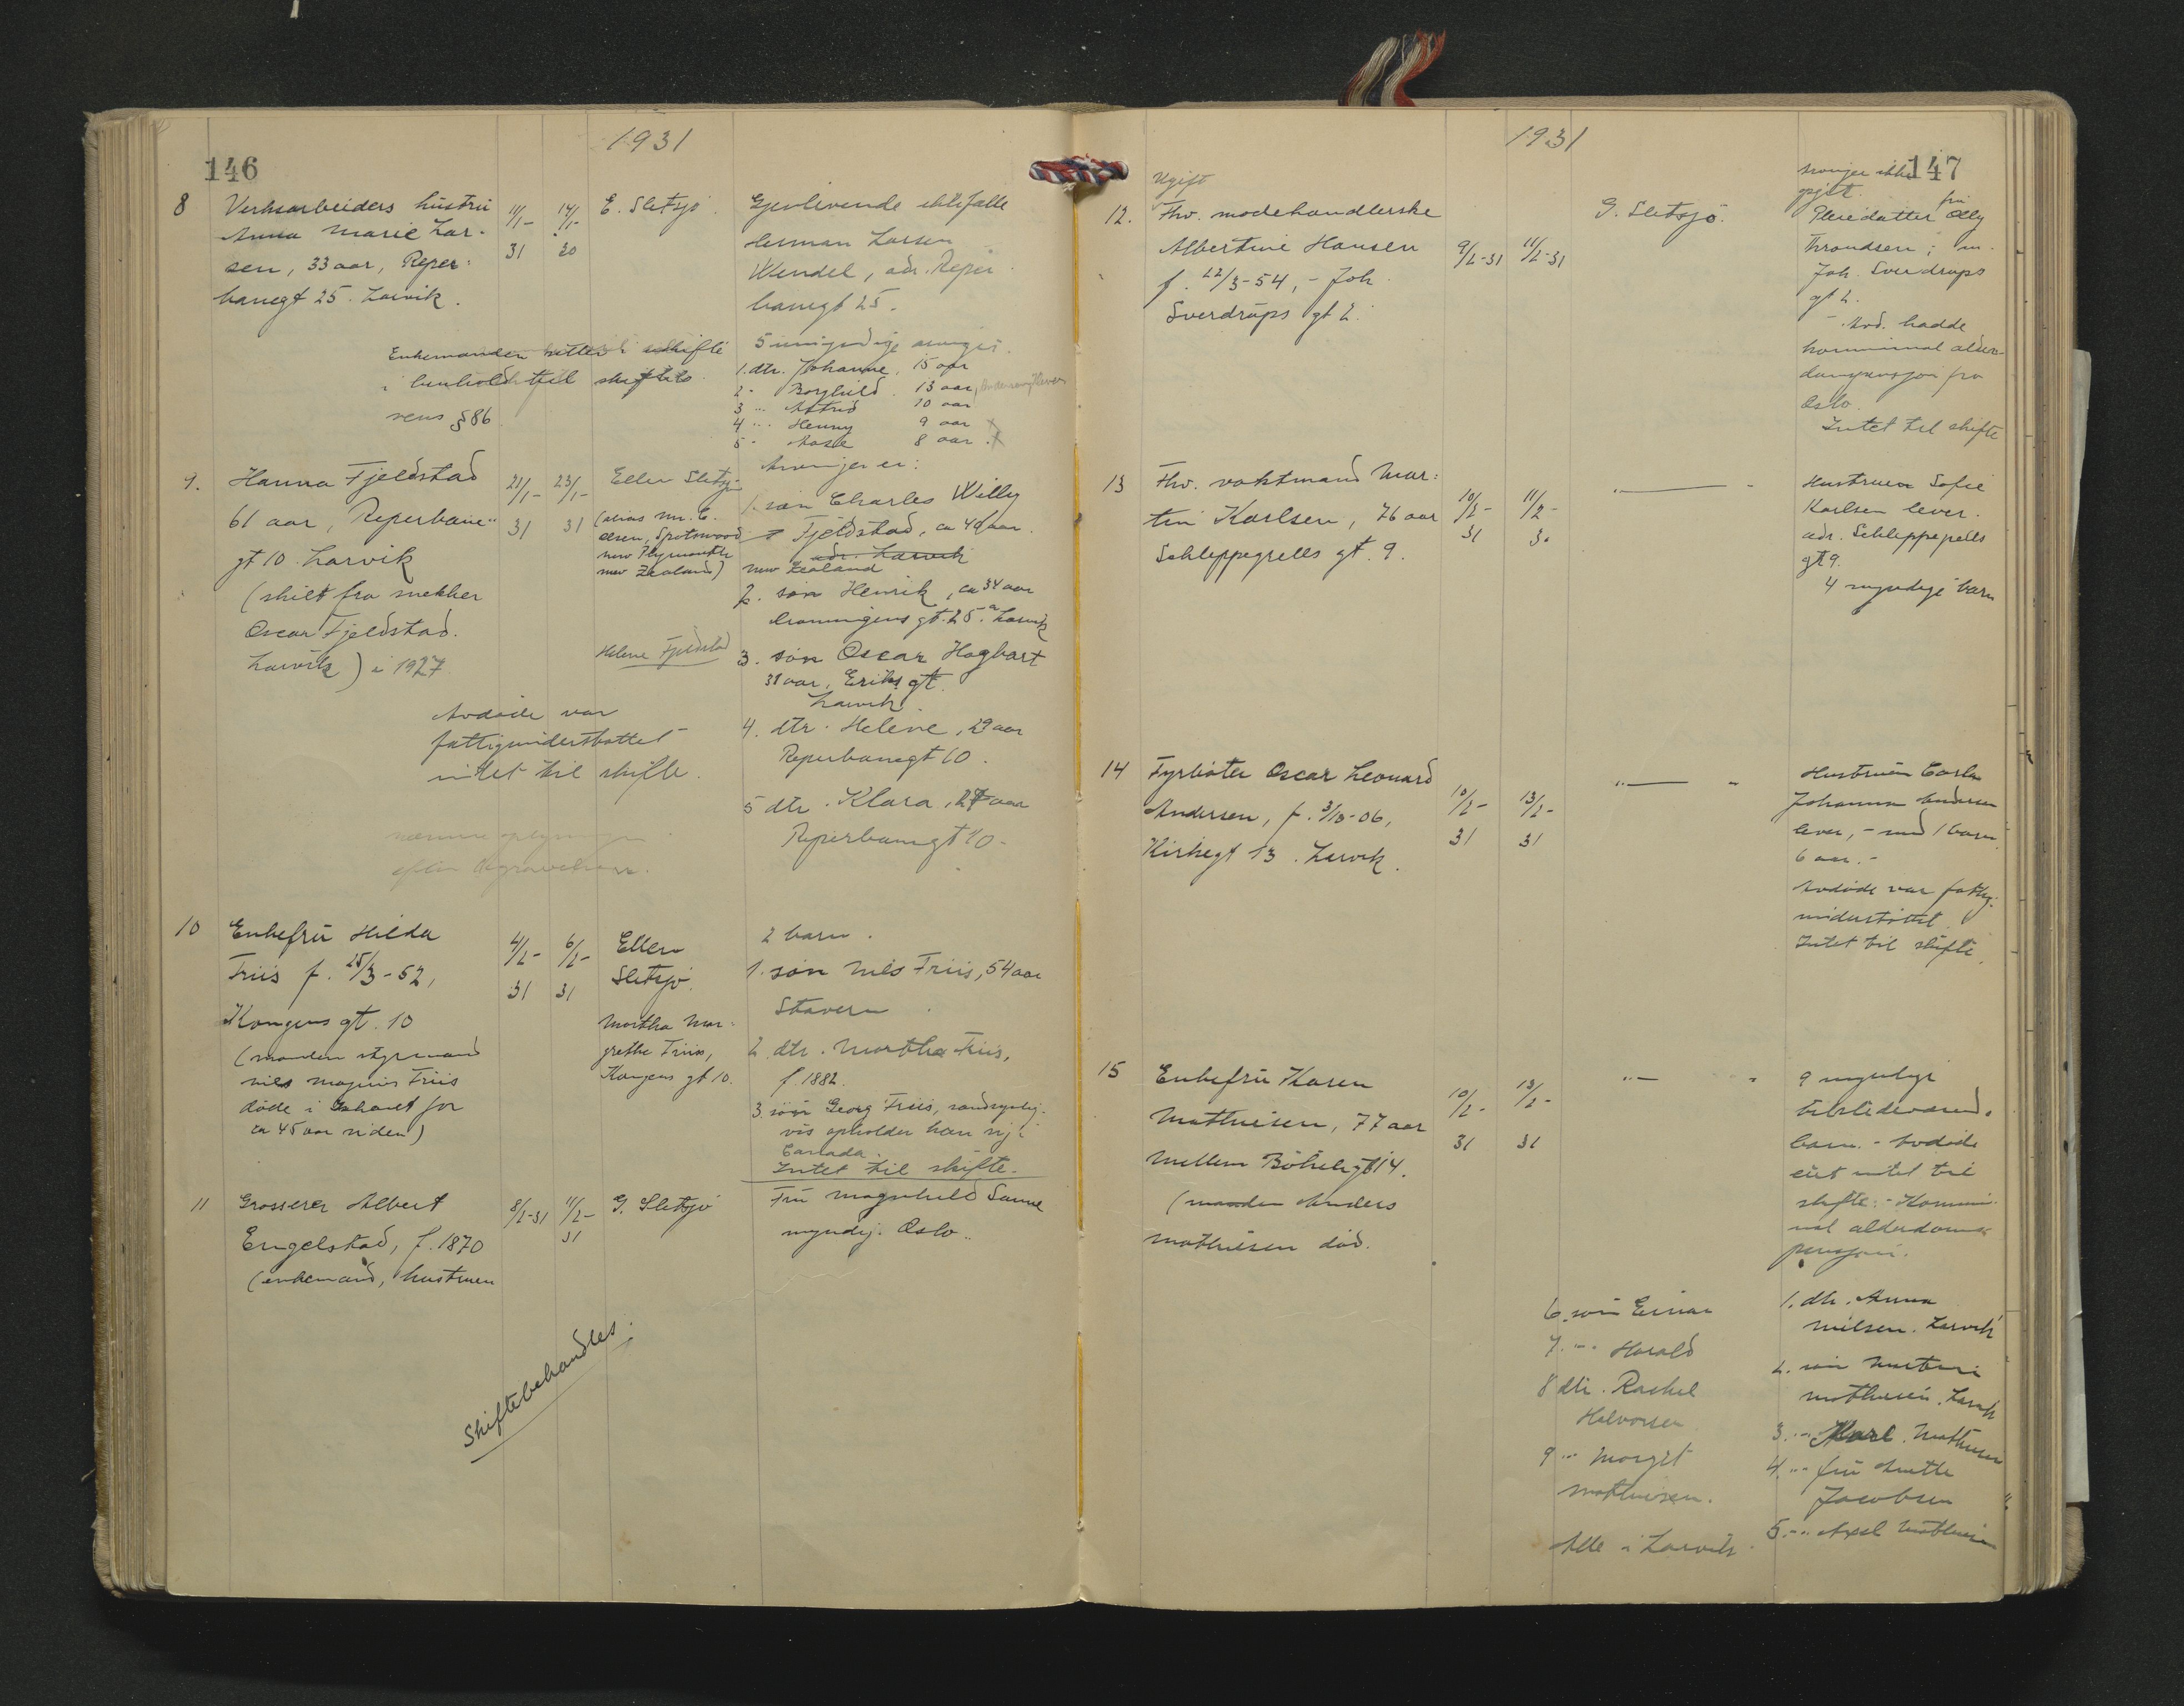 1931
146
8 Verksarbeiders hustru 11/1- 14/1- E. Sletsjø. Gjenlevende ektefælle
Anna Marie Lar- 31 30 Herman Larsen
sen, 33 aar, Reper- Wendel, adr. Reper
banegt 25. Larvik. banegt 25.
Enkemanden sitter i uskifte 5 umyndige
i henhold til skiftelo- 1. dtr. Johanne, 15 aar
vens § 86 2 - Borghild 13 aar,
3 - Astrid 10 aar
4 - Henny 9 aar
5 - Aase 8 aar
9. Hanna Fjeldstad 21/1- 23/1- Ellen Sletsjø Arvinger er:
61 aar, Reperbane- 31 31 1. søn Charles Willy
(alias Mr. C.
Olsen, Spotswood Fjeldstad, ca 40 aar.
gt 10. Larvik New Plymouth adr. Larvik
New Zealand) New Zealand
(skilt fra snekker 2. søn Henrik, ca 34 aar
Oscar Fjeldstad. Dronningens gt. 25 a Larvik
Larvik) i 1927 Helene Fjeldstad 3. søn Oscar Hagbart
31 aar, Eriks gt.
Larvik.
Avdøde var 4. dtr. Helene, 29 aar
fattigunderstøttet Reperbanegt 10.
intet til skifte. 5 dtr. Klara, 27 aar
Reperbanegt 10-
nærmere oplysninger
efter begravelsen.
10 Enkefru Hilda 4/2- 6/2- Ellen 2 barn.
Friis f. 25/3-52, 31 31 Sletsjø. 1. søn Nils Friis, 54 aar
Kongens gt. 10 Martha Mar- Stavern
(manden styrmand grethe Friis, 2. dtr. Martha Friis,
Nils Magnus Friis Kongens gt 10. f. 1882.
døde i for 3. søn Georg Friis, sandsynlig-
ca 45 aar siden) vis opholder han sig i
Canada.
Intet til skifte.
11 Grosserer Albert 8/2-31 11/2- G. Sletsjø Fru Magnhild Sanne
Engelstad, f. 1870 31 myndig. Oslo..
(enkemand, hustruen
Skiftebehandles.
1931
147
Ugift Arvinger ikke
opgit.
12. Fhv. modehandlerske G. Sletsjø. Pleiedatter fru Olly
Albertine Hansen 9/2-31 11/2-31 Throndsen, m.
f. 22/3-54, - Joh. Joh. Sverdrups
Sverdrups gt 2. gt 2.
- Avd. hadde
kommunal alder-
domspensjon fra
Oslo.
Intet til skifte
13 Fhv. vaktmand Mar- 10/2- 11/2- "—— " Hustruen Sofie
tin Karlsen, 76 aar 31 31 Karlsen lever.
Schleppegrells gt. 9. adr. Schleppegrells
gt 9.
4 myndige barn
14 Fyrbøter Oscar Leonard 10/2- 13/2- "—— " Hustruen Carla
Andersen, f. 3/10-06, 31 31 Johanna Andersen
Kirkegt 13. Larvik. lever, - med 1 barn
6 aar. -
Avdøde var fattig-
understøttet
Intet til skifte.
15 Enkefru Karen 10/2- 13/2- "— " 9 myndige
Mathiesen, 77 aar 31 31 tilstedevær.
Mellem Bøkeligt 14. barn. - Avdøde
(manden Anders eiet intet til
Mathiesen død. skifte. - Kommu-
nal alderdoms-
pensjon.
6. søn Einar 1. dtr. Anna
Nilsen. Larvik
7. -" Harald 2. søn Martin
8 dtr. Rachel Mathiesen. Larvik
Halvorsen 3. -" Karl. Mathiesen
9 -" Margit 4. -" fru Anette
Mathiesen. Jacobsen "
Alle i Larvik 5. -" Axel Mathiesen